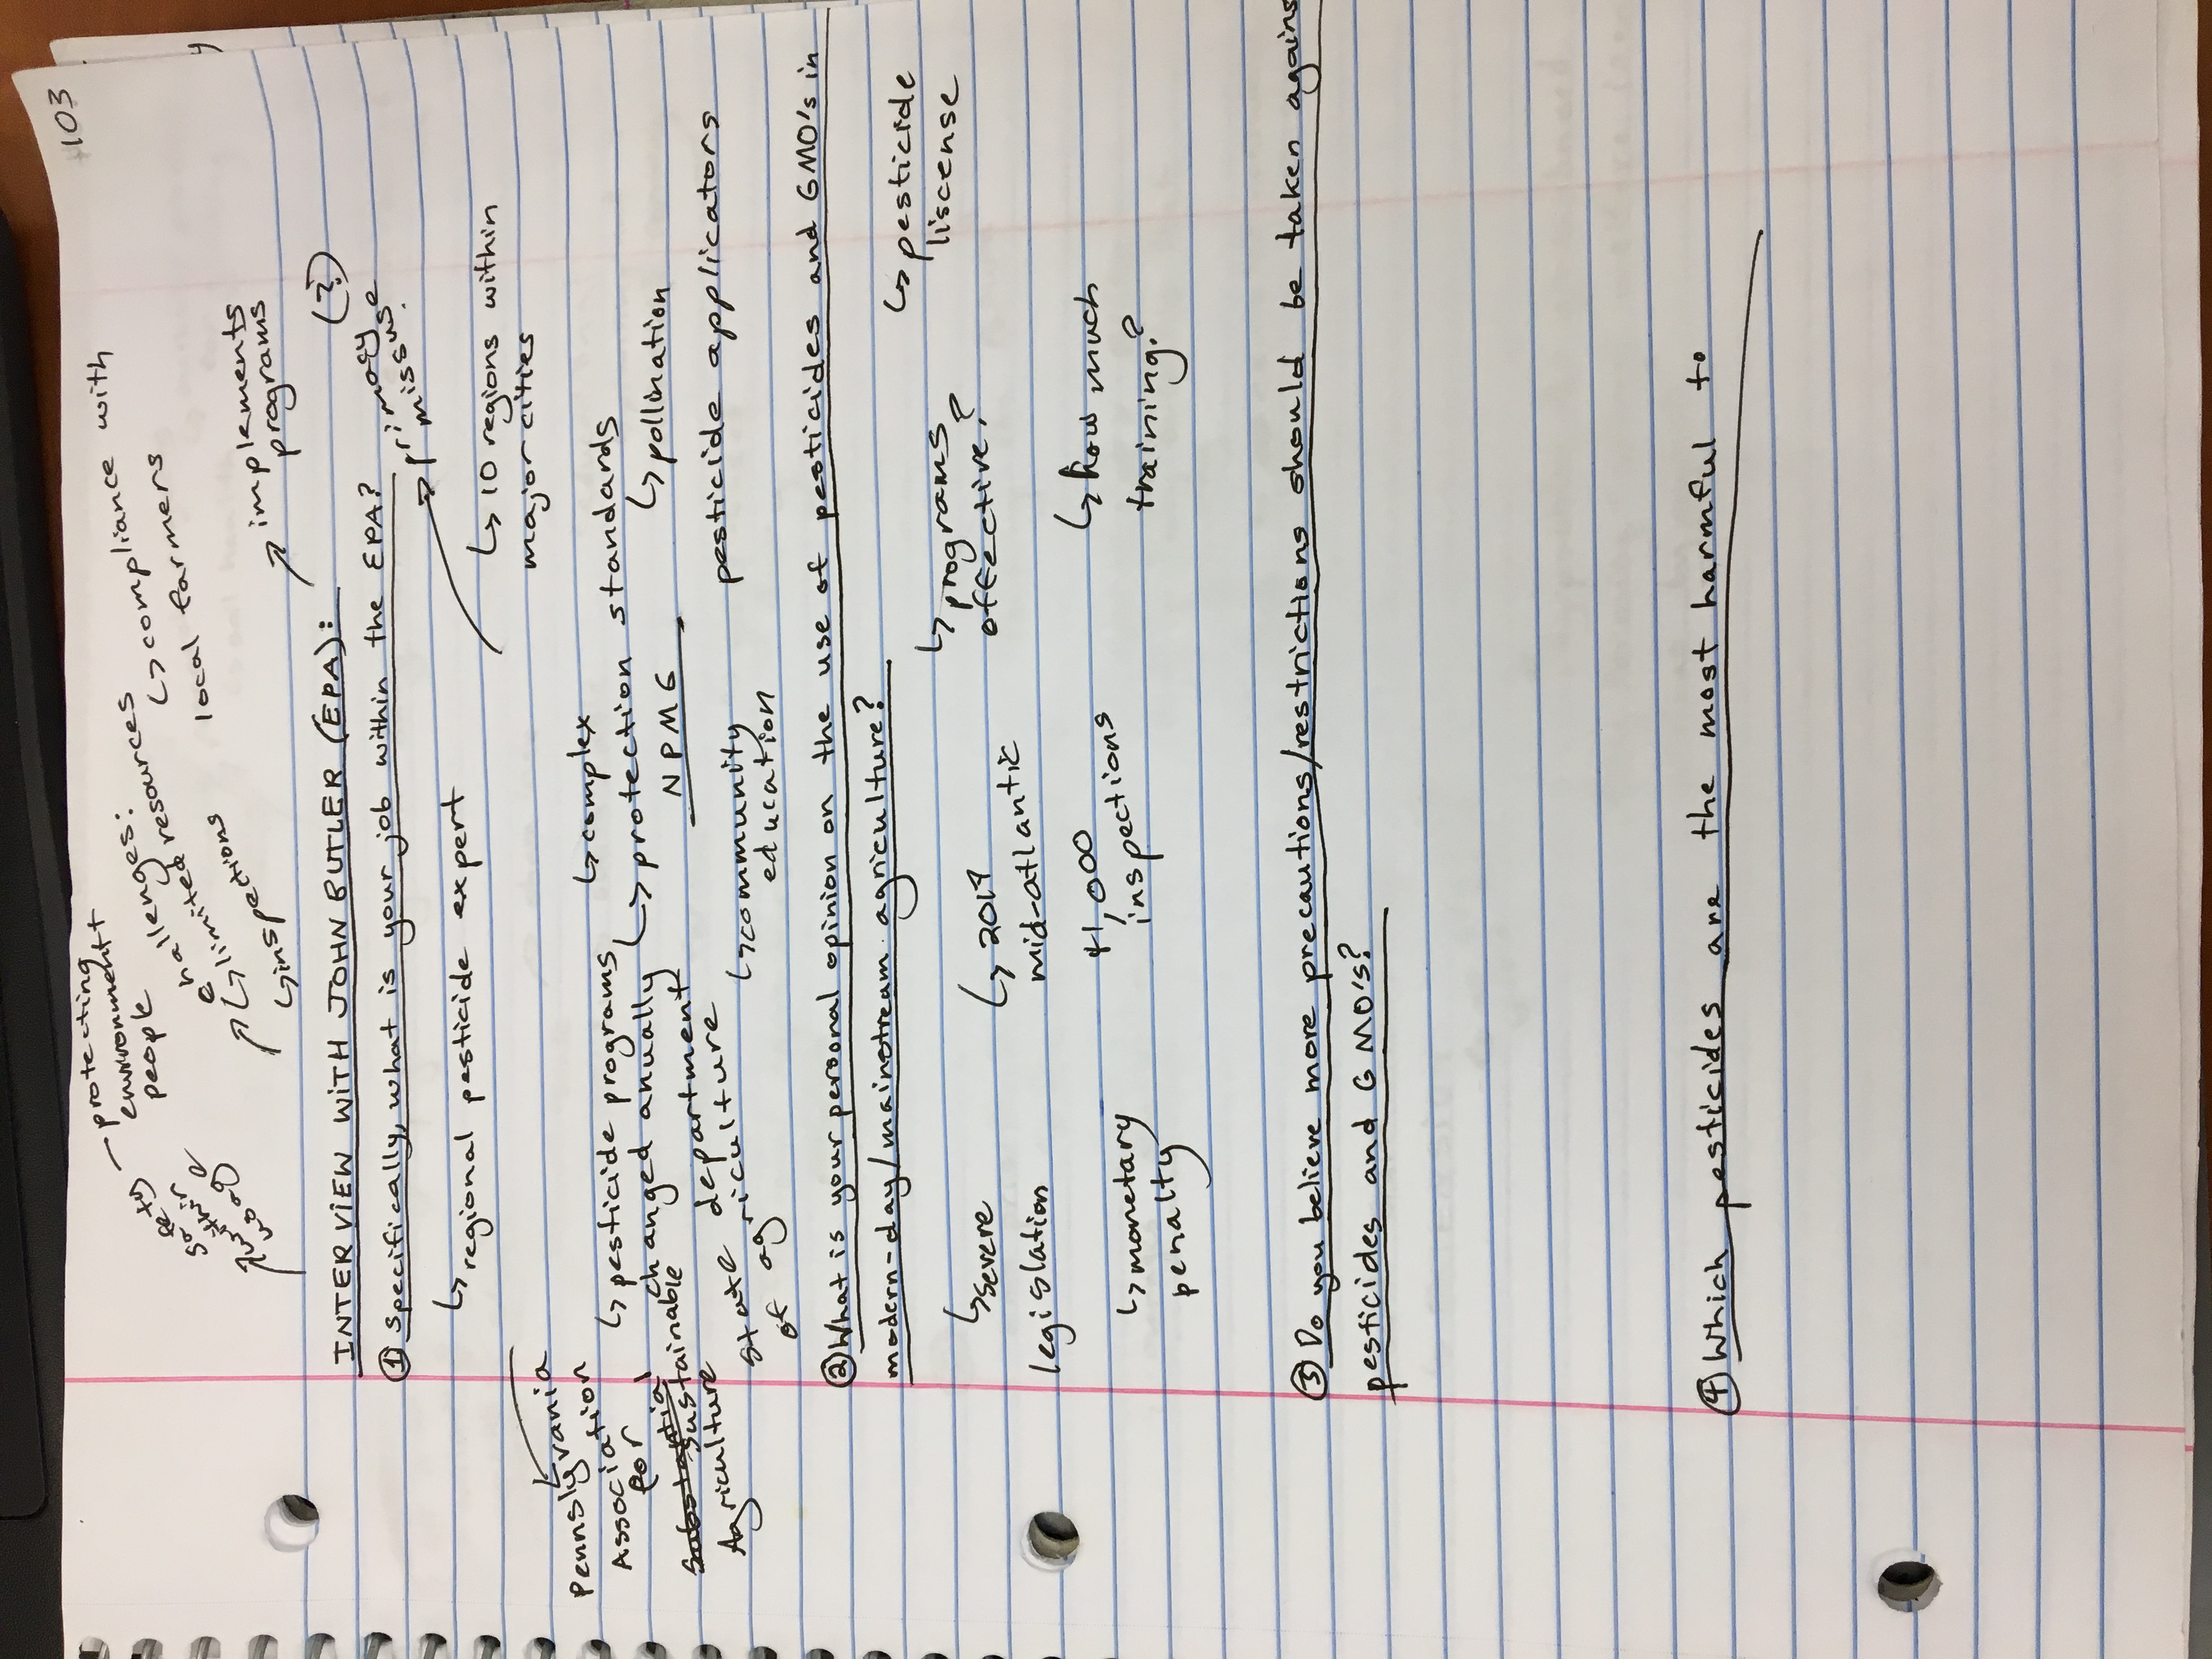 103
protecting
environment
people
challenges:
limited resources
↳ compliance with
local farmers
↳ limitions
↳ inspections
implements
programs
INTERVIEW WITH JOHN BUTLER (EPA):
(?)
① Specifically, what is your job within the EPA?
↳ regional pesticide expert
primary
missus.
↳ 10 regions within
major cities
Pennslyvania
Association
for
sustainable
Agriculture
↳ pesticide programs
changed anually
↳ complex
↳ protection standards
state department
of agriculture
NPMG
↳ pollination
↳ community
education
pesticide applicators
② What is your personal opinion on the use of pesticides and GMO's in
modern-day/mainstream agriculture?
↳ severe
legislation
↳ 2019
mid-atlantic
↳ programs
effective?
↳ pesticide
liscense
↳ monetary
penalty
41,000
inspections
↳ how much
training?
③ Do you believe more precautions/restrictions should be taken agains
pesticides and GMO's?
④ Which pesticides are the most harmful to